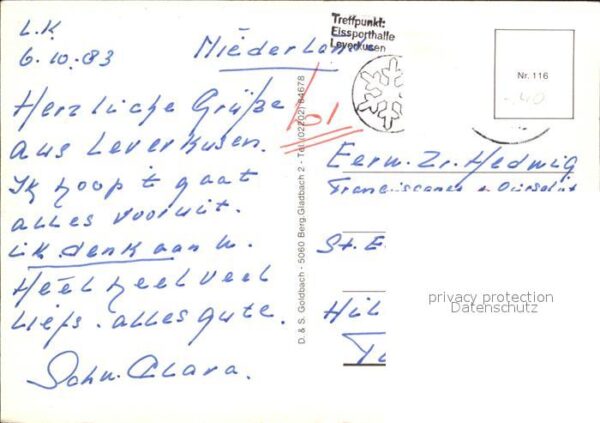 L.K
6.10.83
Niederland
Herzliche Grüße
aus Leverkusen.
Ik hoop t gaat
alles vooruit.
Ik denk aan U.
Heel heel veel
liefs. alles gute.
John. Clara.
Treffpunkt:
Eissporthalle
Leverkusen
Nr. 116
-.40
D. & S. Goldbach - 5060 Berg.Gladbach 2 - Tel. (02202) 84678
Eerw. Zr. Hedwig
St. E
Hül
privacy protection
Datenschutz